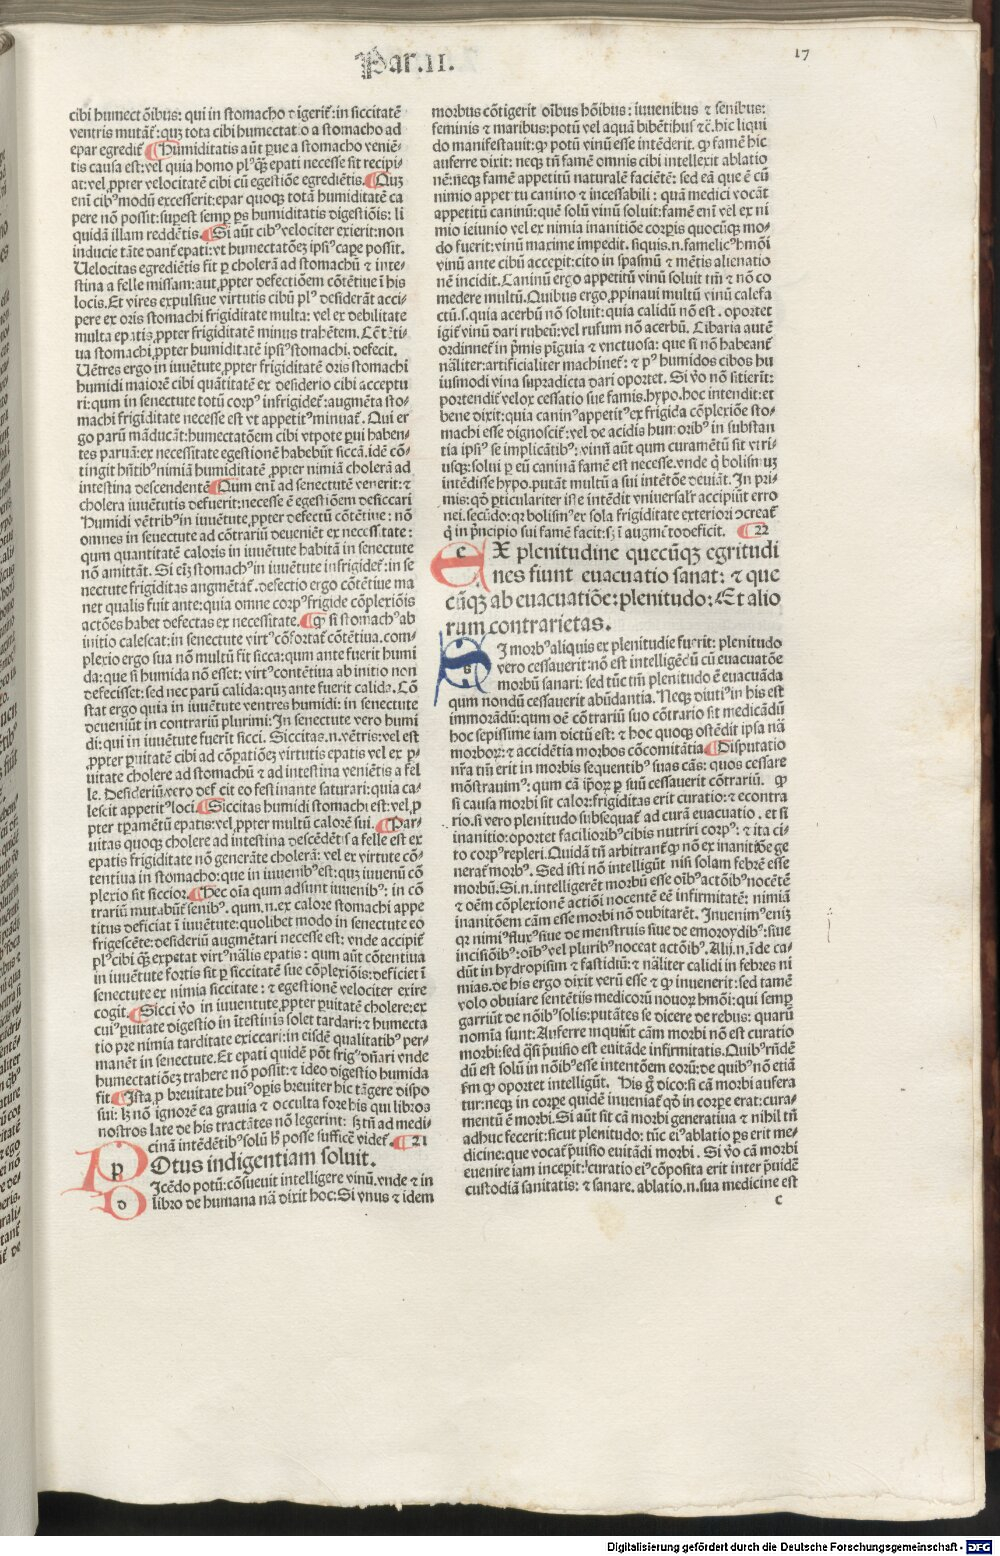 Par.II.
17
cibi humectõibus: qui in stomacho digerit᷑: in siccitatẽ
ventris mutãt᷑: quꝫ tota cibi humectatio a stomacho ad
epar egredit᷑ Humiditatis aũt ꝑue a stomacho veniẽ-
tis causa est: vel quia homo plꝰ qꝫ epati necesse sit recipi-
at: vel ꝓpter velocitatẽ cibi cũ egestiõe egrediẽtis. Quꝫ
eni cibꝰ modũ excesserit: epar quoqꝫ totã humiditatẽ ca
pere nõ possit: suꝑest semꝑ ꝑs humiditatis digestiõis: li
quidã illam reddẽtis. Si aũt cibꝰ velociter exierit: non
inducie tãte dant᷑ epati: vt humectatõeꝫ ipsiꝰ capẽ possit.
Velocitas egrediẽtis fit ꝑ cholerã ad stomachũ ⁊ inte-
stina a felle missam: aut ꝓpter defectiõem cõtẽtiue ĩ his
locis. Et vires expulsiue virtutis cibũ plꝰ desiderãt acci
pere ex oris stomachi frigiditate multa: vel ex debilitate
multa epatis ꝓpter frigiditatẽ minus trahẽtem. Cõtẽti-
ua stomachi ꝓpter humiditatẽ ipsiꝰ stomachi. defecit.
Vẽtres ergo in iuuẽtute ꝓpter frigiditatẽ oris stomachi
humidi maiorẽ cibi quãtitatẽ ex desiderio cibi acceptu
ri: qum in senectute totũ corpꝰ infrigidet᷑: augmẽta sto-
machi frigiditate necesse est vt appetitꝰ minuat᷑. Qui er
go parũ mãducãt: humectatõem cibi vtpote ꝑui haben-
tes paruã: ex necessitate egestionẽ habebũt siccã. idẽ cõ-
tingit hñtibꝰ nimiã humiditatẽ ꝓpter nimiã cholerã ad
intestina descendentẽ Qum eni ad senectutẽ venerit: ⁊
cholera iuuẽtutis defuerit: necesse ẽ egestiõem desiccari
Humidi vẽtribꝰ in iuuẽtute ꝓpter defectũ cõtẽtiue: nõ
omnes in senectute ad cõtrariũ deueniẽt ex necessitate:
qum quantitatẽ caloris in iuuẽtute habitã in senectute
nõ amittãt. Si eiꝫ stomachꝰ in iuuẽtute infrigidet᷑: in se
nectute frigiditas augmẽtat᷑. defectio ergo cõtẽtiue ma
net qualis fuit ante: quia omne corpꝰ frigide cõplexiõis
actões habet defectas ex necessitate. Qꝫ si stomachꝰ ab
initio calescat: in senectute virtꝰ cõfortat᷑ cõtẽtiua. com-
plexio ergo sua nõ multũ fit sicca: qum ante fuerit humi
da: que si humida nõ esset: virtꝰ contẽtiua ab initio non
defecisset: sed nec parũ calida: quꝫ ante fuerit calida. Cõ
stat ergo quia in iuuẽtute ventres humidi: in senectute
deueniũt in contrariũ plurimi: In senectute vero humi
di: qui in iuuẽtute fuerĩt sicci. Siccitas .n. vẽtris: vel est
ꝓpter ꝑuitatẽ cibi ad cõpatiõeꝫ virtutis epatis vel ex ꝑ-
uitate cholere ad stomachũ ⁊ ad intestina veniẽtis a fel
le. Desideriũ vero deficit eo festinante saturari: quia ca-
lescit appetitꝰ loci. Siccitas humidi stomachi est: vel ꝓ
pter tꝑamẽtũ epatis: vel ꝓpter multũ calorẽ sui. Par-
uitas quoqꝫ cholere ad intestina descẽdẽtis a felle est ex
epatis frigiditate nõ generãte cholerã: vel ex virtute cõ-
tentiua in stomacho: que in iuuenibꝰ est: quꝫ iuuenũ cõ
plexio sit siccior. Hec oĩa qum adsunt iuuenibꝰ: in cõ
trariũ mutabũt᷑ senibꝰ. qum .n. ex calore stomachi appe
titus deficiat ĩ iuuẽtute: quolibet modo in senectute eo
frigescẽte: desideriũ augmẽtari necesse est: vnde accipit᷑
plꝰ cibi qꝫ expetat virtꝰ nãlis epatis: qum aũt cõtentiua
in iuuẽtute fortis sit ꝑ siccitatẽ sue cõplexiõis: deficiet ĩ
senectute ex nimia siccitate: ⁊ egestionẽ velociter exire
cogit. Sicci ṽo in iuuentute ꝓpter ꝑuitatẽ cholere: ex
cuiꝰ ꝑuitate digestio in ĩtestinis solet tardari: ⁊ humecta
tio pre nimia tarditate exiccari: in eisdẽ qualitatibꝰ per-
manẽt in senectute. Et epati quidẽ põt frigꝰ dñari vnde
humectatiõeꝫ trahere nõ possit: ⁊ ideo digestio humida
fit. Ista ꝓ breuitate huiꝰ oꝑis breuiter hic tãgere dispo
sui: lꝫ nõ ignorẽ ea grauia ⁊ occulta fore his qui libros
nostros late de his tractãtes nõ legerint: sꝫ tñ ad medi-
cinã intẽdẽtibꝰ solũ hꝰ posse sufficẽ videt᷑. 21
POtus indigentiam soluit.
DIcẽdo potũ: cõsueuit intelligere vinũ. vnde ⁊ in
libro de humana nã dixit hoc: Si vnus ⁊ idem
morbus cõtigerit oĩbus hõibus: iuuenibus ⁊ senibus:
feminis ⁊ maribus: potũ vel aquã bibẽtibus ⁊c̃. hic liqui
do manifestauit: ꝙ potũ vinũ esse intẽderit. ꝙ famẽ hic
auferre dixit: neqꝫ tñ famẽ omnis cibi intellexit ablatio
nẽ: neqꝫ famẽ appetitũ naturalẽ faciẽtẽ: sed eã que ẽ cũ
nimio appetitu canino ⁊ incessabili: quã medici vocãt
appetitũ caninũ: quẽ solũ vinũ soluit: famẽ eni vel ex ni
mio ieiunio vel ex nimia inanitiõe corꝑis quocũqꝫ mo-
do fuerit: vinũ maxime impedit. siquis .n. famelicꝰ hmõi
vinũ ante cibũ acceperit: cito in spasmũ ⁊ mẽtis alienatio
nẽ incidit. Caninũ ergo appetitũ vinũ soluit tm̃ ⁊ nõ co
medere multũ. Quibus ergo ꝓpinaui multũ vinũ calefa
ctũ .s. quia acerbũ nõ soluit: quia calidũ nõ est. oportet
igit᷑ vinũ dari rubeũ: vel rufum nõ acerbũ. Cibaria autẽ
ordinnet᷑ in p̃mis pĩguia ⁊ vnctuosa: que si nõ habeant᷑
nãliter: artificialiter machinet᷑: ⁊ pꝰ humidos cibos hu
iusmodi vina supradicta dari oportet. Si ṽo nõ sitierit:
portendit᷑ velox cessatio sue famis. hypo. hoc intendit: et
bene dixit: quia caninꝰ appetitꝰ ex frigida cõplexiõe sto-
machi esse dignoscit᷑: vel de acidis humoribꝰ in substan
tia ipsiꝰ se implicãtibꝰ: vinũ aũt qum curamẽtũ sit vtri-
usqꝫ: solui ꝑ eũ caninã famẽ est necesse. vnde q̇ bolismuꝫ
intẽdisse hypo. putãt multũ a sui intẽtõe deuiãt. In pri-
mis: qꝛ ꝑticulariter iste intẽdit vniuersalr̃ accipiũt erro
nei. secũdo: qꝛ bolismꝰ ex sola frigiditate exteriori ↄcreat᷑
q̇ in p̃ncipio sui famẽ facit: sꝫ ĩ augmẽto deficit. 22
EX plenitudine quecũqꝫ egritudi
nes fiunt euacuatio sanat: ⁊ que
cũqꝫ ab euacuatiõe: plenitudo: Et alio
rum contrarietas.
SI morbꝰ aliquis ex plenitudie fuerit: plenitudo
vero cessauerit: nõ est intelligẽdũ cũ euacuatõe
morbũ sanari: sed tũc tm̃ plenitudo ẽ euacuãda
qum nondũ cessauerit abũdantia. Neqꝫ diutiꝰ in his est
immorãdũ: qum oẽ cõtrariũ suo cõtrario sit medicãdũ
hoc sepissime iam dictũ est: ⁊ hoc quoqꝫ ostẽdit ipsa nã
morborꝝ: ⁊ accidẽtia morbos cõcomitãtia Disputatio
nr̃a tm̃ erit in morbis sequentibꝰ suas cãs: quos cessare
mõstrauimꝰ: qum cã ipõꝝ ꝑ suũ cessauerit cõtrariũ. ꝙ
si causa morbi sit calor: frigiditas erit curatio: ⁊ econtra
rio. si vero plenitudo subsequat᷑ ad curã euacuatio. et si
inanitio: oportet faciliori cibis nutriri corpꝰ: ⁊ ita ci-
to corpꝰ repleri. Quidã tñ arbitrant᷑ ꝙ nõ ex inanitiõe ge
nerat᷑ morbꝰ. Sed isti nõ intelligũt nisi solam febrẽ esse
morbũ. Si .n. intelligerẽt morbũ esse oĩbꝰ actõibꝰ nocẽtẽ
⁊ oẽm cõplexionẽ actiõi nocentẽ eẽ infirmitatẽ: nimiã
inanitõem cãm esse morbi nõ dubitarẽt. Inuenimꝰ eniꝫ
qꝛ nimiꝰ fluxꝰ siue de menstruis siue de emoroydibꝰ: siue
incisiõibꝰ: oĩbꝰ vel pluribꝰ noceat actõibꝰ. Alij .n. ĩde ca-
dũt in hydropisim ⁊ fastidiũ: ⁊ nãliter calidi in febres ni
mias. de his ergo dixit verũ esse ⁊ ꝙ inuenerit: sed tamẽ
volo obuiare sentẽtijs medicorũ nouorꝝ hmõi: qui semꝑ
garriũt de nõibꝰ solis: putãtes se dicere de rebus: quarũ
nomĩa sunt: Auferre inquiũt cãm morbi nõ est curatio
morbi: sed q̃si ꝓuisio est euitãde infirmitatis. Quibꝰ rñdẽ
dũ est solũ in nõibꝰ esse intentõem eorũ: de quibꝰ nõ etiã
fm ꝙ oportet intelligũt. His gͦ dico: si cã morbi aufera
tur: neqꝫ in corpe quidẽ inueniat᷑ qꝛ in corpe erat: cura-
mentũ ẽ morbi. Si aũt sit cã morbi generatiua ⁊ nihil tñ
adhuc fecerit: sicut plenitudo: tũc eiꝰ ablatio ꝑs erit me-
dicine: que vocat᷑ ꝓuisio euitãdi morbi. Si ṽo cã morbi
euenire iam inceperit: curatio eiꝰ cõposita erit inter ꝓuidẽ
custodiã sanitatis: ⁊ sanare. ablatio .n. sua medicine est
c
Digitalisierung gefördert durch die Deutsche Forschungsgemeinschaft - DFG